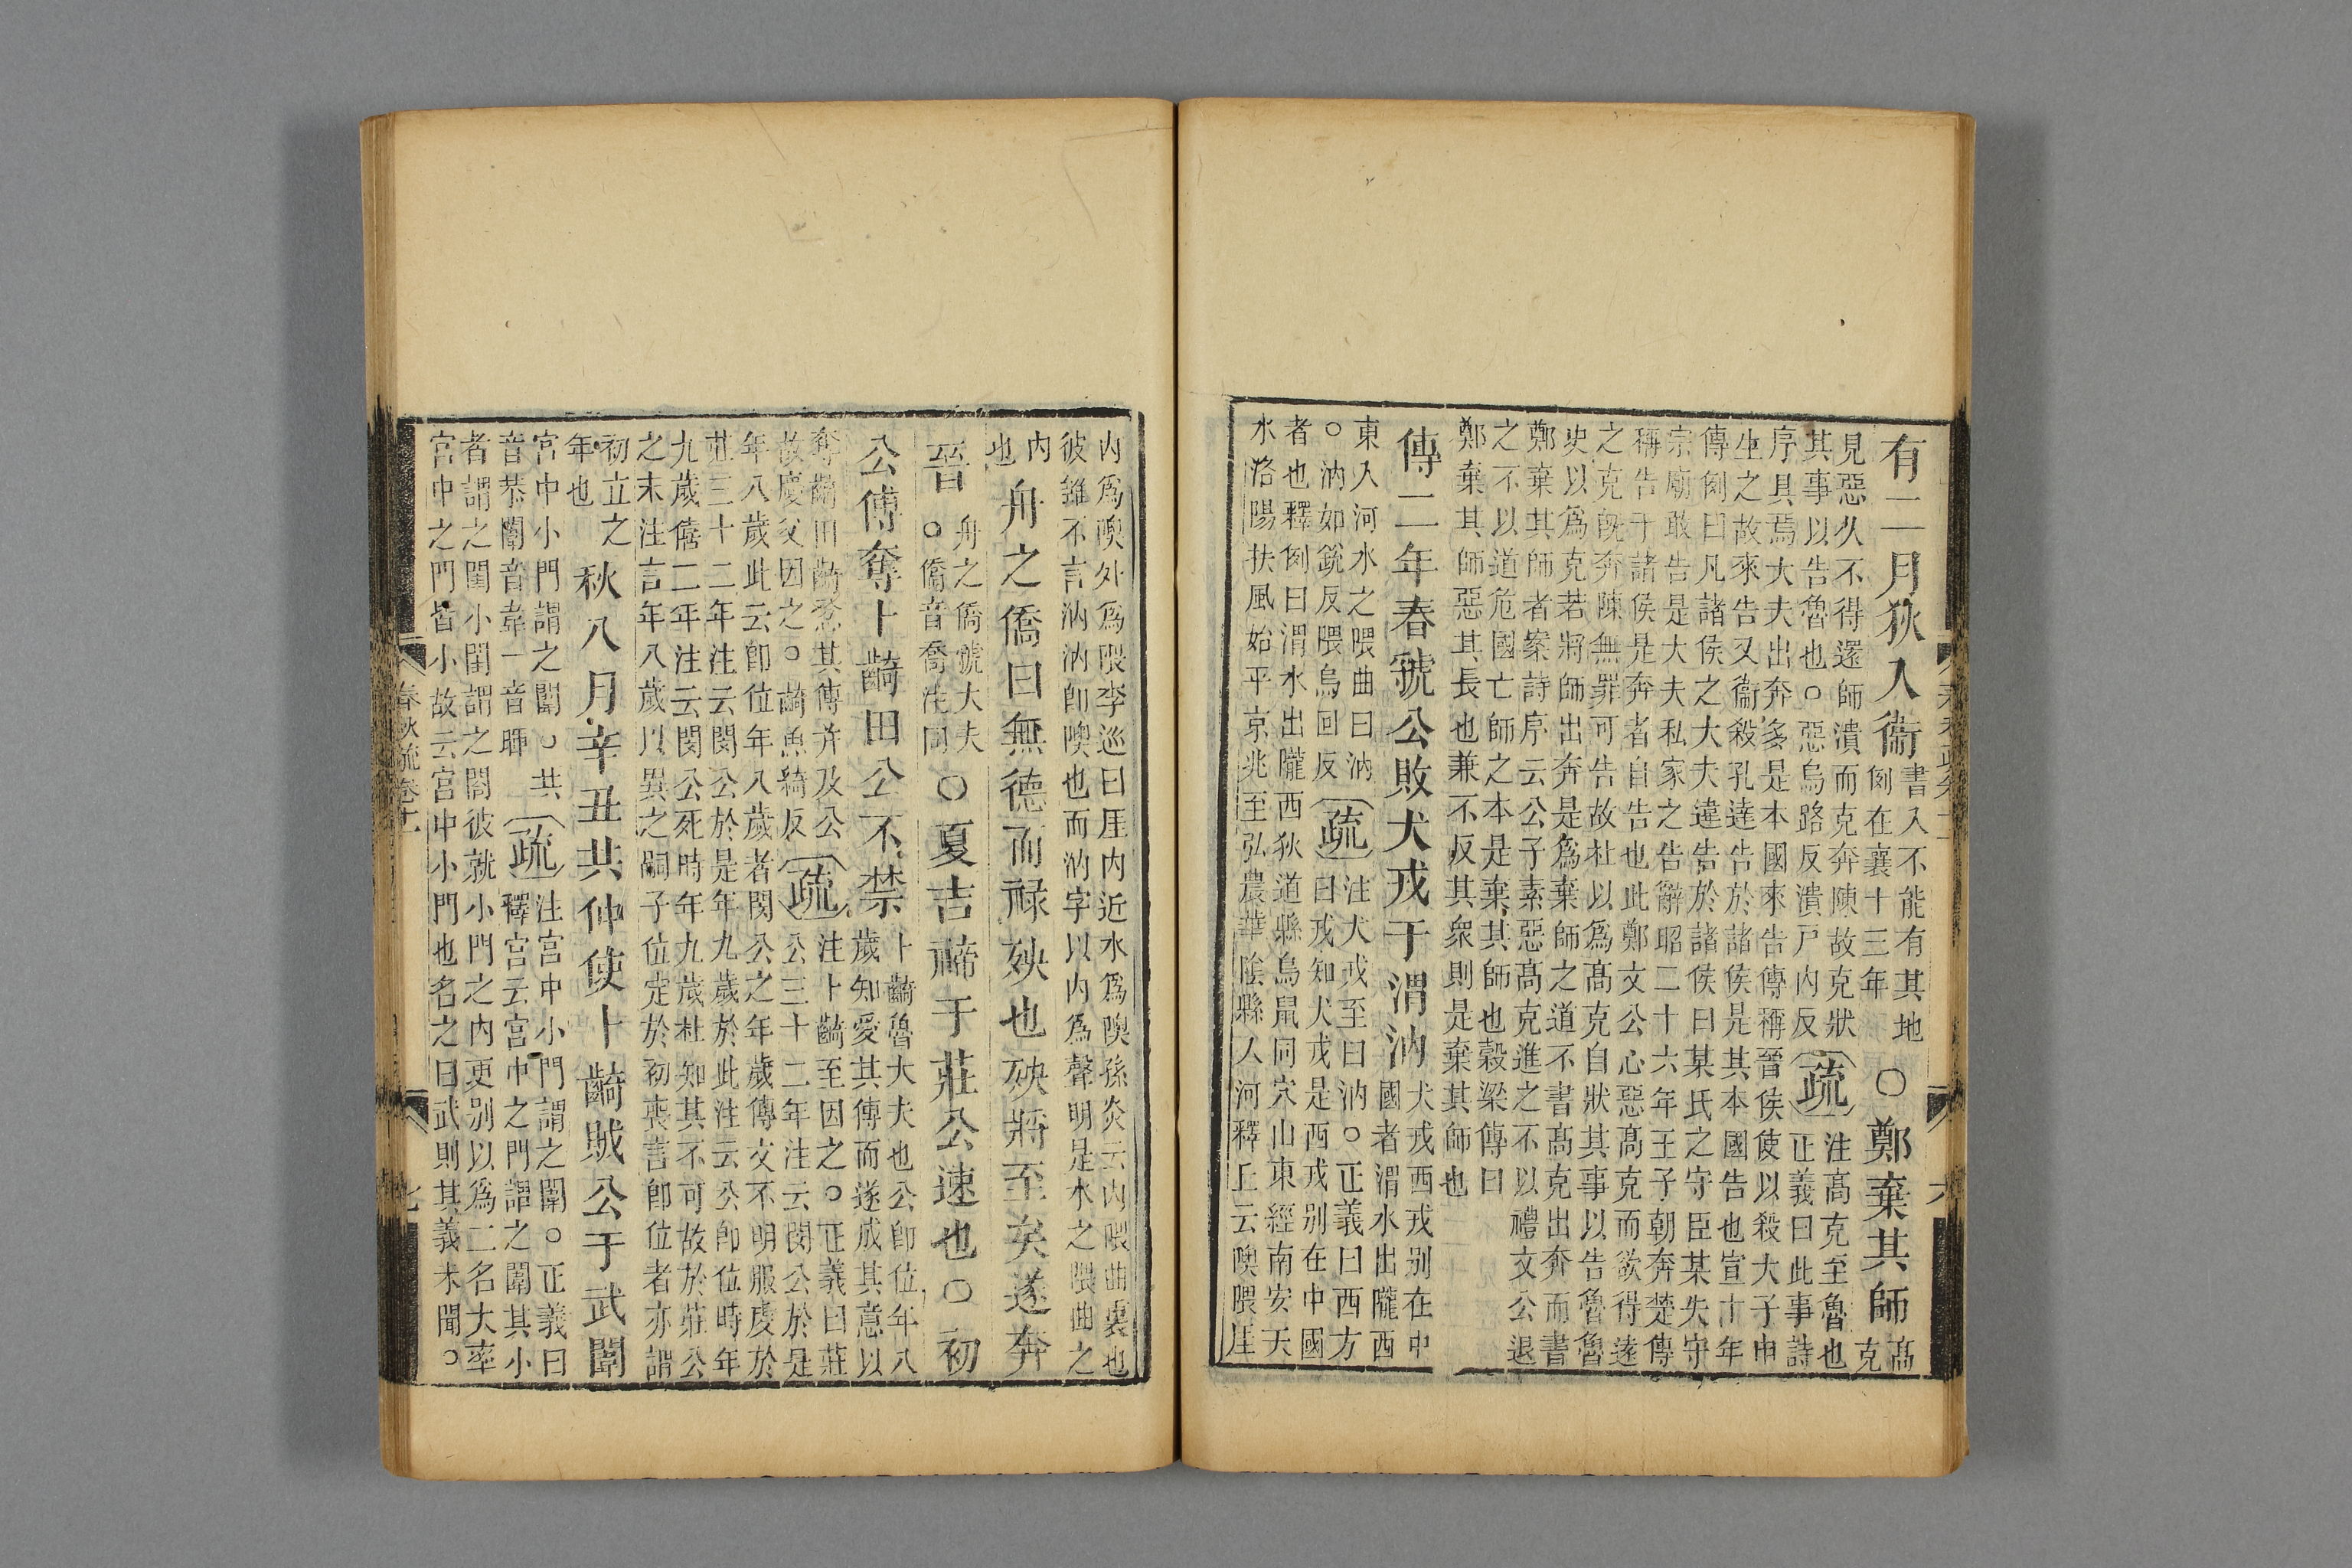 有二月狄入衞書入不能有其地例在襄十三年○鄭棄其師高克
見惡久不得還師潰而克奔陳故克狀
其事以告魯也○惡烏路反潰戸内反疏注高克至魯也
正義曰此事詩
序具焉大夫出奔多是本國來告傳稱晉侯使以殺大子申
生之故來告又衞殺孔達告於諸侯是其本國告也宣十年
傳例曰凡諸侯之大夫違告於諸侯曰某氏之守臣某失守
宗廟敢告是大夫私家之告辭昭二十六年王子朝奔楚傳
稱告于諸侯是奔者自告也此鄭文公心惡髙克而欲得遂
之克旣奔陳無罪可告故杜以爲髙克自狀其事以告魯魯
史以爲克若將師出奔是爲棄師之道不書髙克出奔而書
鄭棄其師者案詩序云公子素惡髙克進之不以禮文公退
之不以道危國亡師之本是棄其師也穀梁傳曰
鄭棄其師惡其長也兼不反其衆則是棄其師也
傳二年春虢公敗犬戎于渭汭犬戎西戎别在中國者渭水出隴西
東入河水之隈曲曰汭
○汭如銳反隈烏回反疏注犬戎至曰汭○正義曰西方
曰戎知犬戎是西戎别在中國
者也釋例曰渭水出隴西狄道縣鳥鼠同穴山東經南安天
水洛陽扶風始平京兆至弘農華陰縣人河釋丘云隩隈厓
内爲隩外爲隈李巡曰厓内近水爲隩孫炎云内隈曲裏也
彼雖不言汭汭卽隩也而汭字以内爲聲明是水之隈曲之
内也舟之僑曰無德而祿殃也殃將至矣遂奔
晉舟之僑虢大夫○僑音喬注同○夏吉禘于莊公速也○初
公傅奪卜齮田公不禁卜齮魯大夫也公卽位年八歲知愛其傅而遂成其意以
奪齮田齮忿其傅并及公
故慶父因之○齮魚綺反疏注卜齮至因之○正義曰莊
公三十二年注云閔公於是
年八歲此云卽位年八歲者閔公之年歲傳文不明服虔於
莊三十二年注云閔公於是年九歲於此注云公卽位時年
九歲僖二年注云閔公死時年九歲杜知其不可故於莊公
之末注言年八歲以異之嗣子位定於初喪言卽位者亦謂
初立之年也秋八月辛丑共仲使卜齮賊公于武闈
宮中小門謂之闈○共
音恭闈音韋一音暉疏注宮中小門謂之闈○正義曰
釋宮云宮中之門謂之闈其小
者謂之閨小閨謂之閤彼就小門之内更别以爲二名大率
宮中之門皆小故云宮中小門也名之曰武則其義未聞○
春秋疏卷十一
七